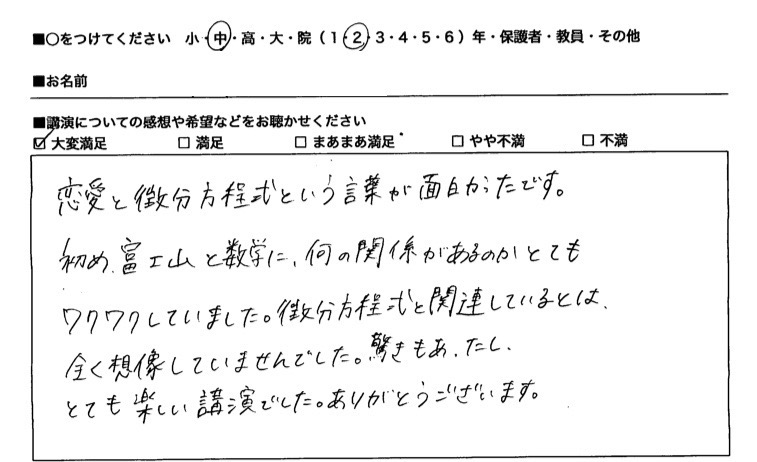 ■○をつけてください　小・中・高・大・院（1・2・3・4・5・6）年・保護者・教員・その他
■お名前
■講演についての感想や希望などをお聴かせください
☑ 大変満足　□ 満足　□ まあまあ満足　□ やや不満　□ 不満
恋愛と微分方程式という言葉が面白かったです。
初め、富士山と数学に、何の関係があるのかとても
ワクワクしていました。微分方程式と関連しているとは、
全く想像していませんでした。驚きもあったし、
とても楽しい講演でした。ありがとうございます。